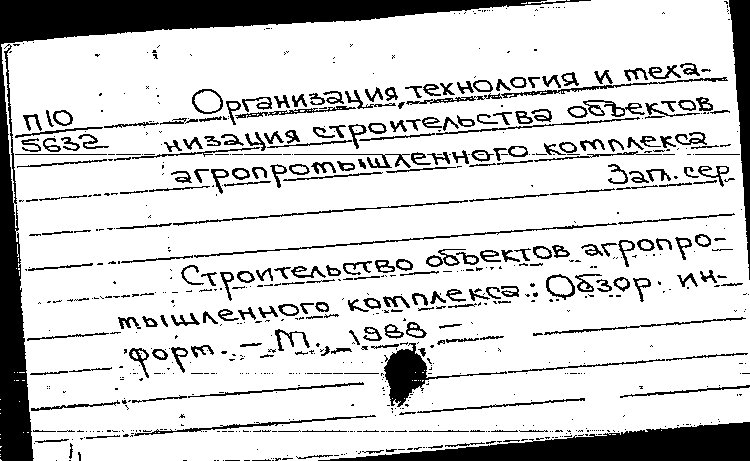 П10
5632
Организация, технология и меха-
низация строительства объектов
агропромышленного комплекса
Загл. сер
Строительство объектов агропро-
мышленного комплекса: Обзор. ин-
форм. – М., 1988 –